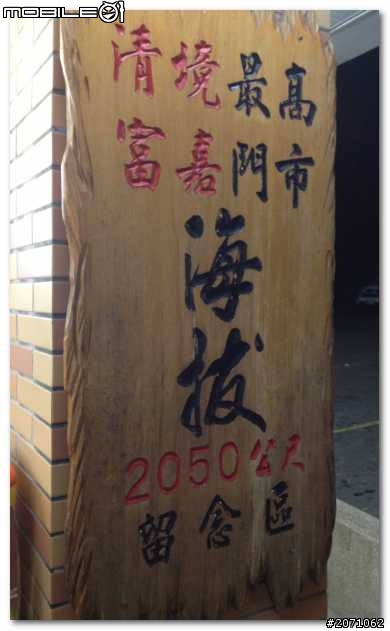 mobile01
清境最高
富嘉門市
海拔
2050公尺
留念區
#2071062